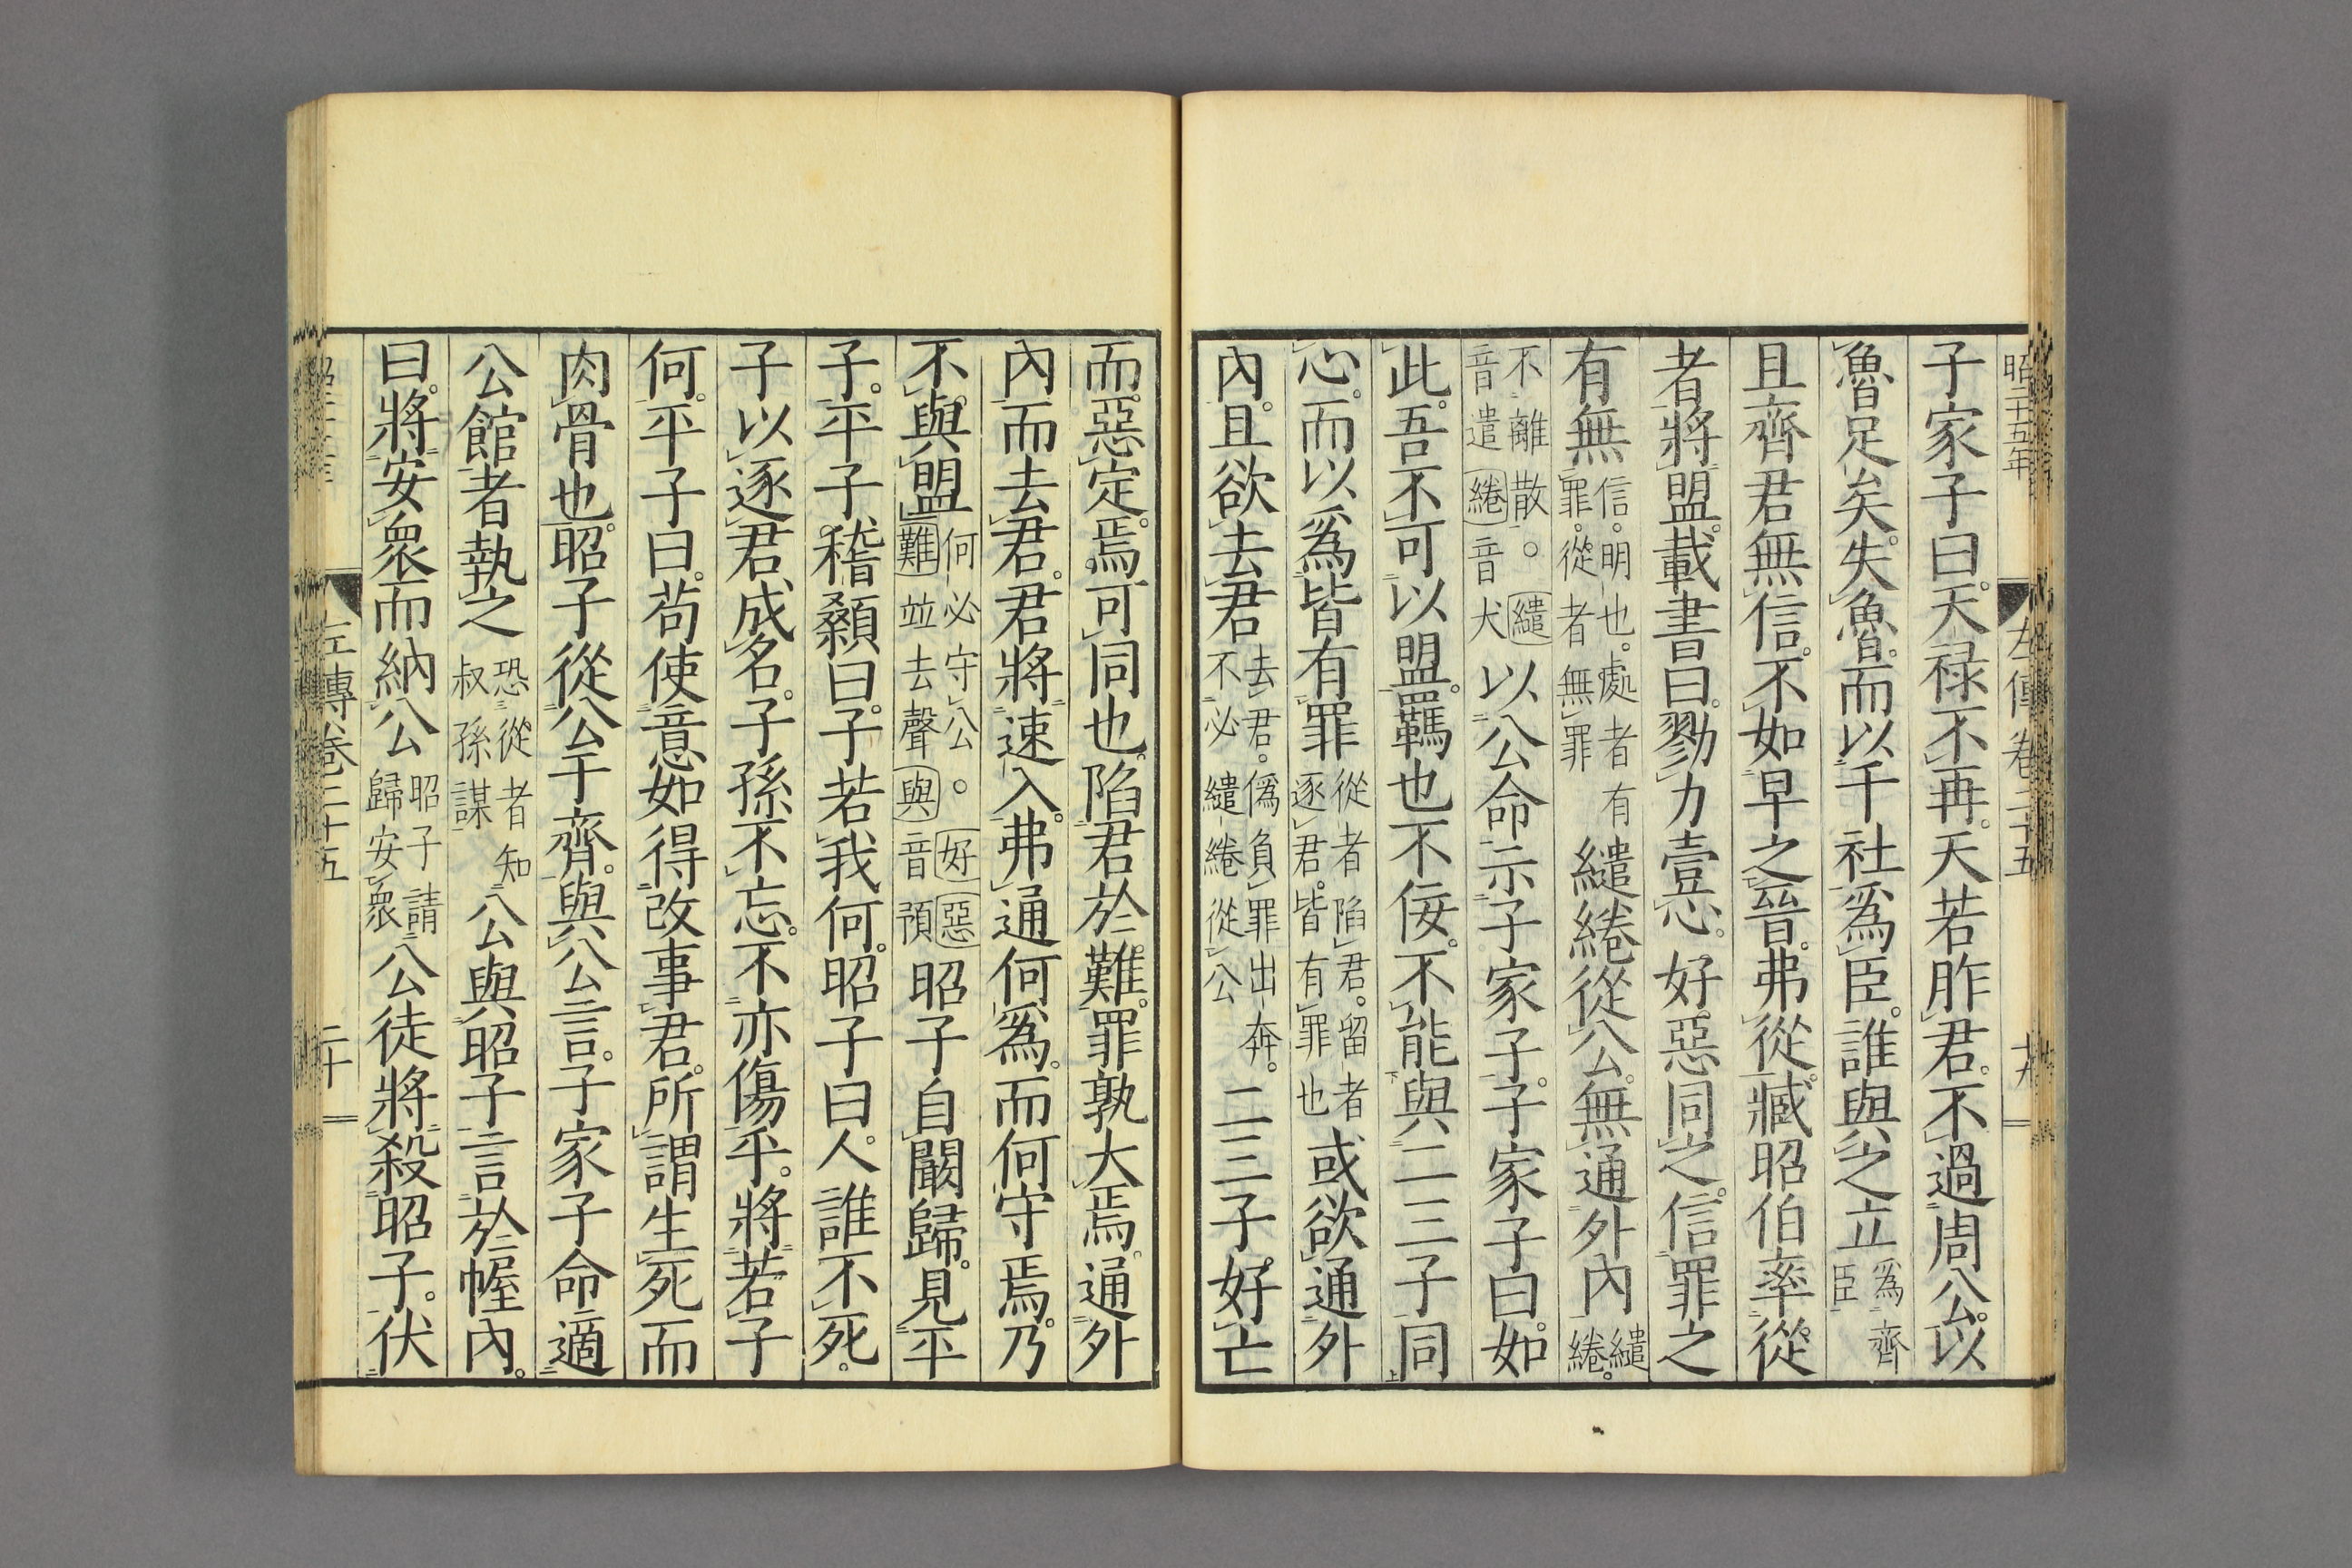 昭二十五年 左傳卷二十五 十九
子家子曰。天禄不再。天若胙君。不過周公。以
魯足矣。失魯。而以千社爲臣。誰與之立爲齊臣
且齊君無信。不如早之晉。弗從。臧昭伯率從
者將盟。載書曰。勠力壹心。好惡同之。信罪之
有無信。明也。處者有罪。從者無罪繾綣從公。無通外内繾綣。
不離散。繾音遣綣音犬以公命示子家子。子家子曰。如
此。吾不可以盟。羈也不佞。不能與二三子同
心。而以爲皆有罪從者陷君。留者逐君。皆有罪也或欲通外
内。且欲去君去君。僞負罪出奔。不必繾綣從公二三子好亡
而惡定焉。可同也。陷君於難。罪孰大焉。通外
内而去君。君將速入。弗通何爲。而何守焉。乃
不與盟何必守公。好惡難並去聲與音預昭子自闞歸。見平
子。平子稽顙曰。子若我何。昭子曰。人誰不死。
子以逐君成名。子孫不忘。不亦傷乎。將若子
何。平子曰。苟使意如得改事君。所謂生死而
肉骨也。昭子從公于齊。與公言。子家子命適
公館者執之恐從者知叔孫謀公與昭子言於幄内。
曰。將安衆而納公昭子請歸安衆公徒將殺昭子。伏
左傳卷二十五 二十